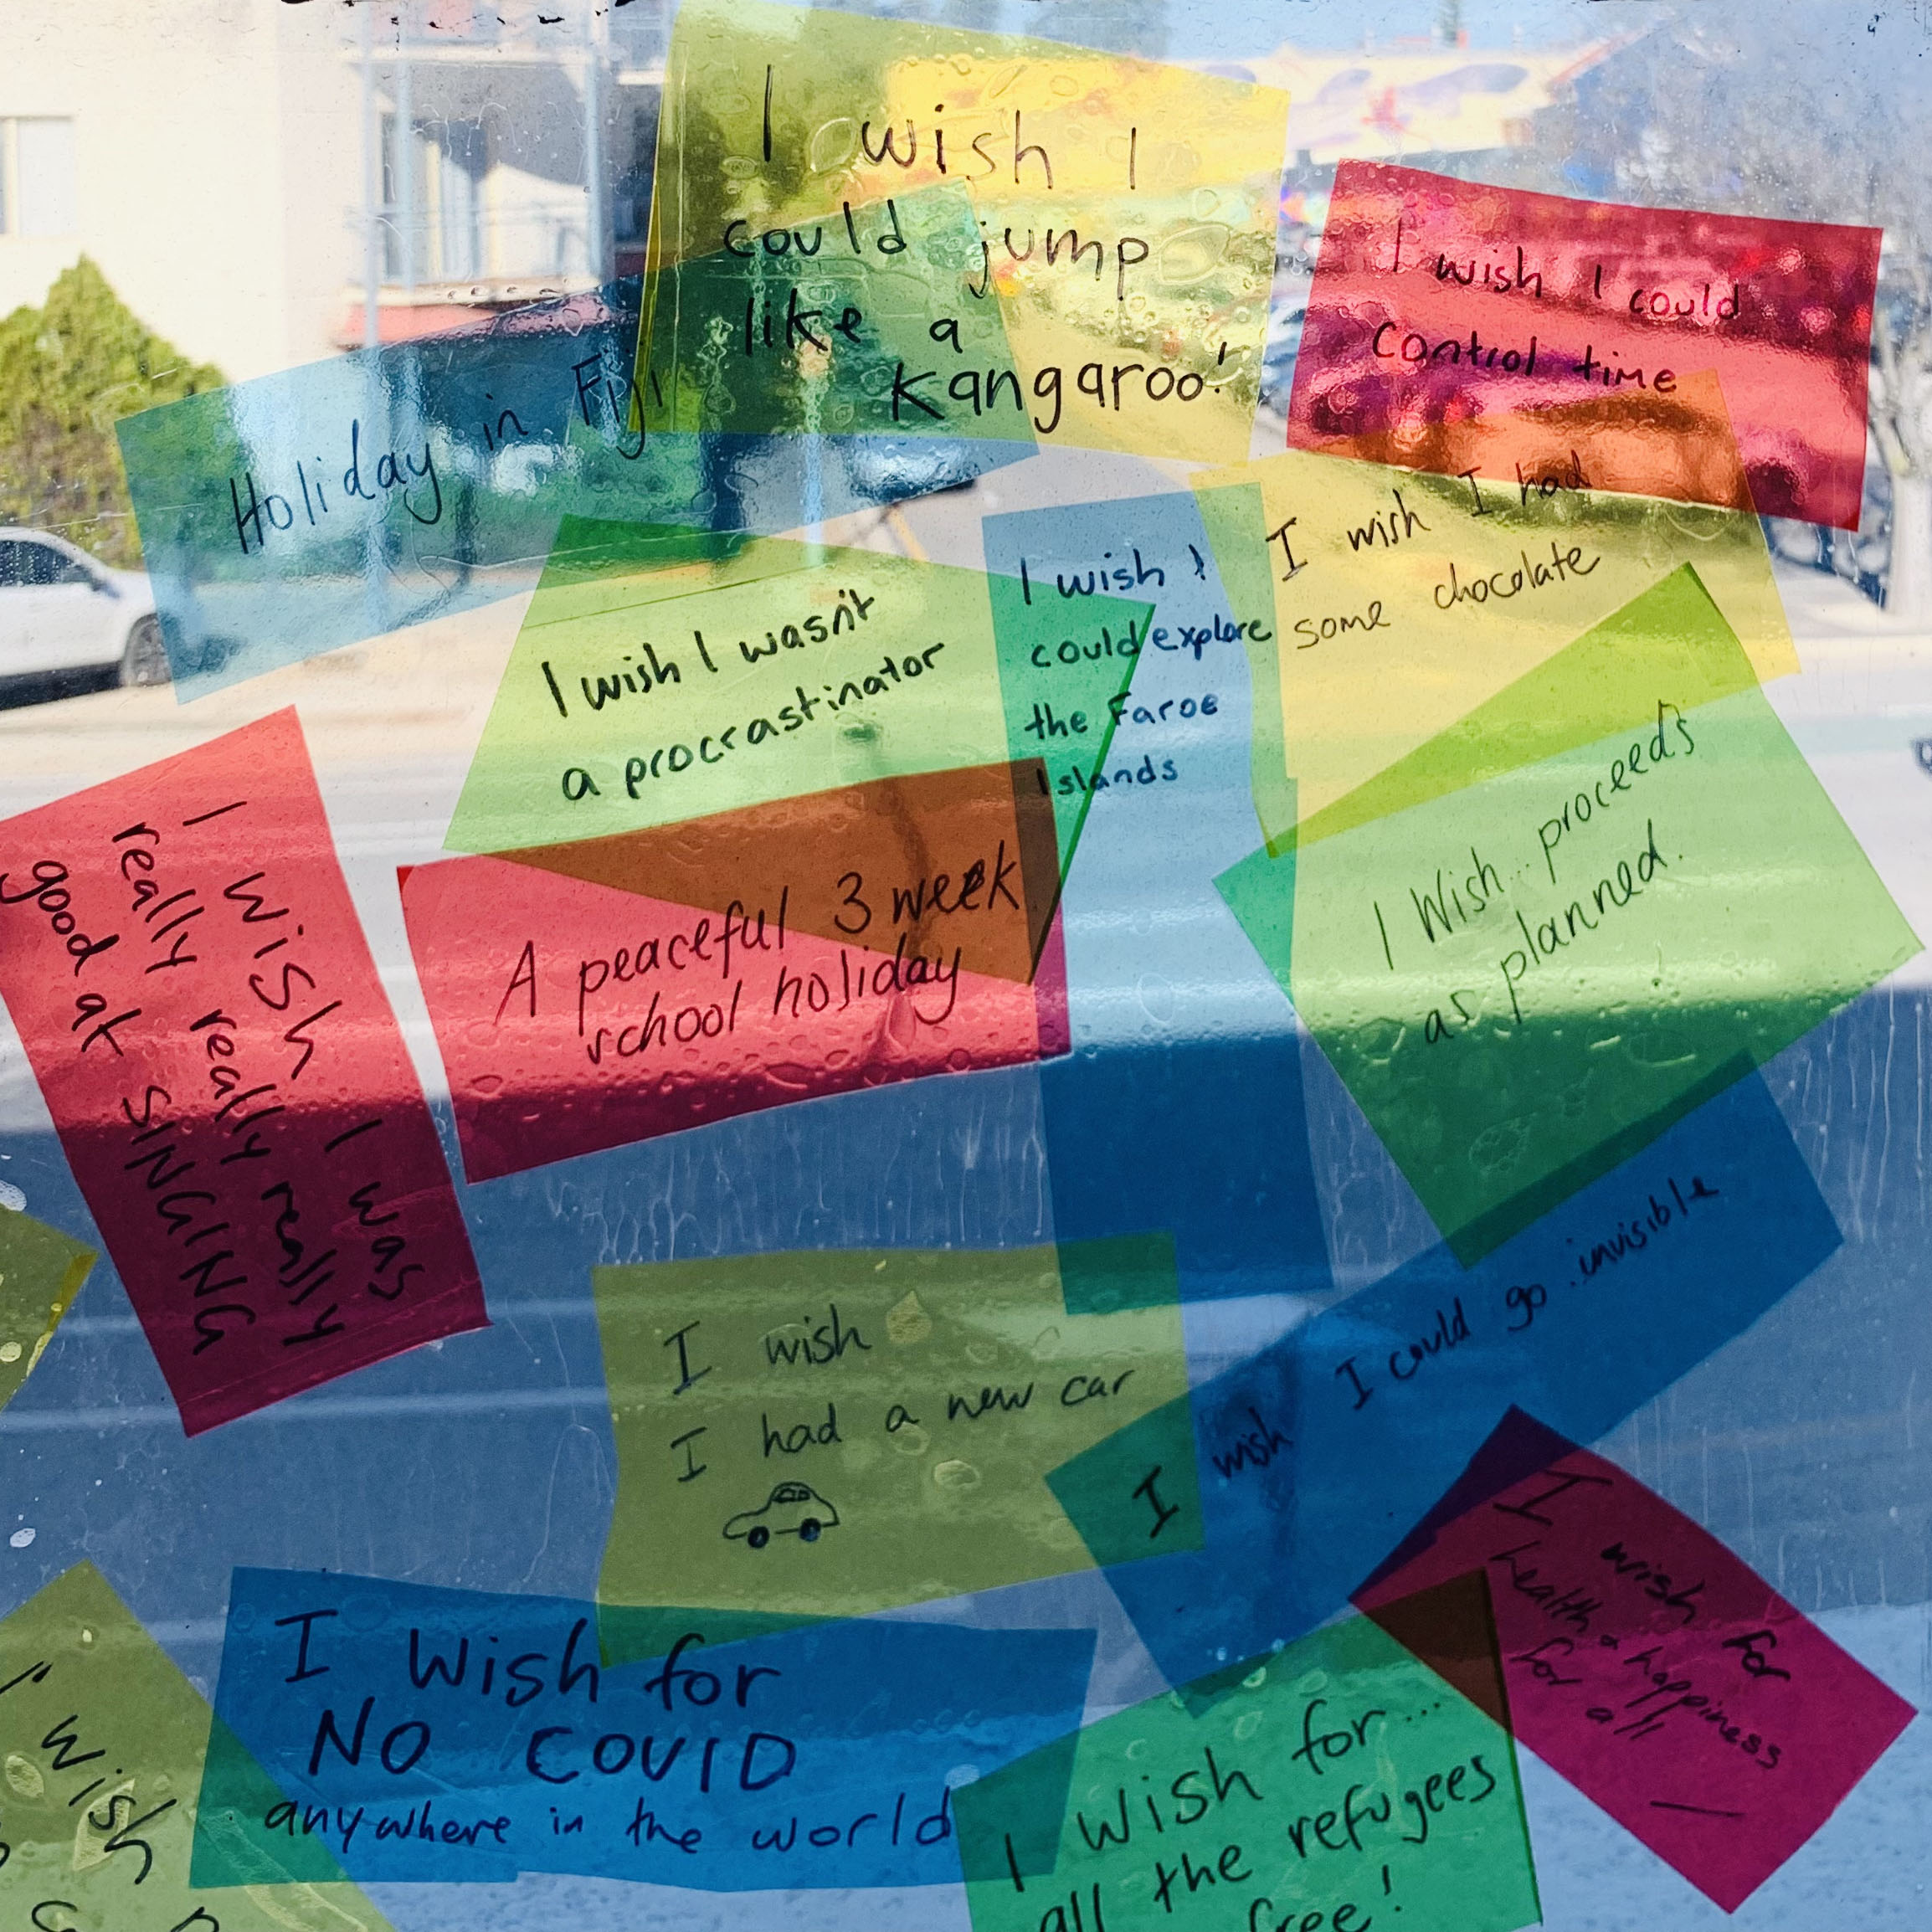 I wish I
could jump
like a
kangaroo!
I wish I could
control time
Holiday in Fiji
I wish I had
some chocolate
I wish I
could explore
the Faroe
Islands
I wish I wasn't
a procrastinator
I Wish.. proceeds
as planned.
I WiSh I was
really really really
good at SINGING
A peaceful 3 week
school holiday
I wish
I had a new car
I wish I could go invisible
I wish for
health & happiness
for all
I Wish for
NO COVID
anywhere in the world
I Wish for...
all the refugees
free!
I wish